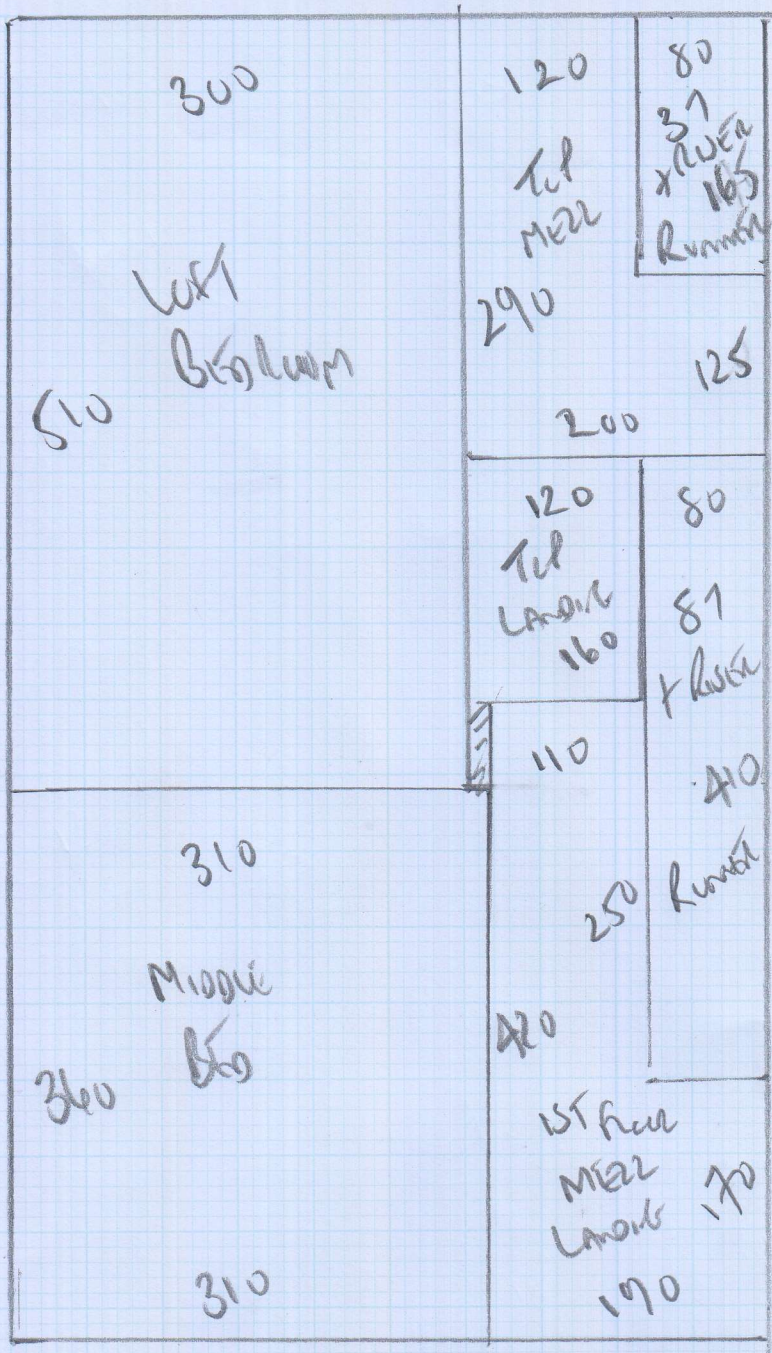 300
LOFT
BEDROOM
510
120
TOP
MEZZ
290
125
200
80
3T
+ RISER
165
RUNNER
120
TOP
LANDING
160
80
8T
+ RISER
410
RUNNER
110
250
420
310
MIDDLE
BED
360
310
1ST FLOOR
MEZZ
LANDING
170
190